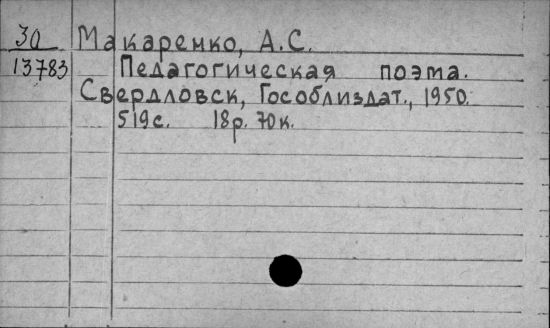 30 Макаренко, А.С.
13783 Педагогическая поэма.
Свердловск, Гособлиздат., 1950.
519с. 18р. 70к.